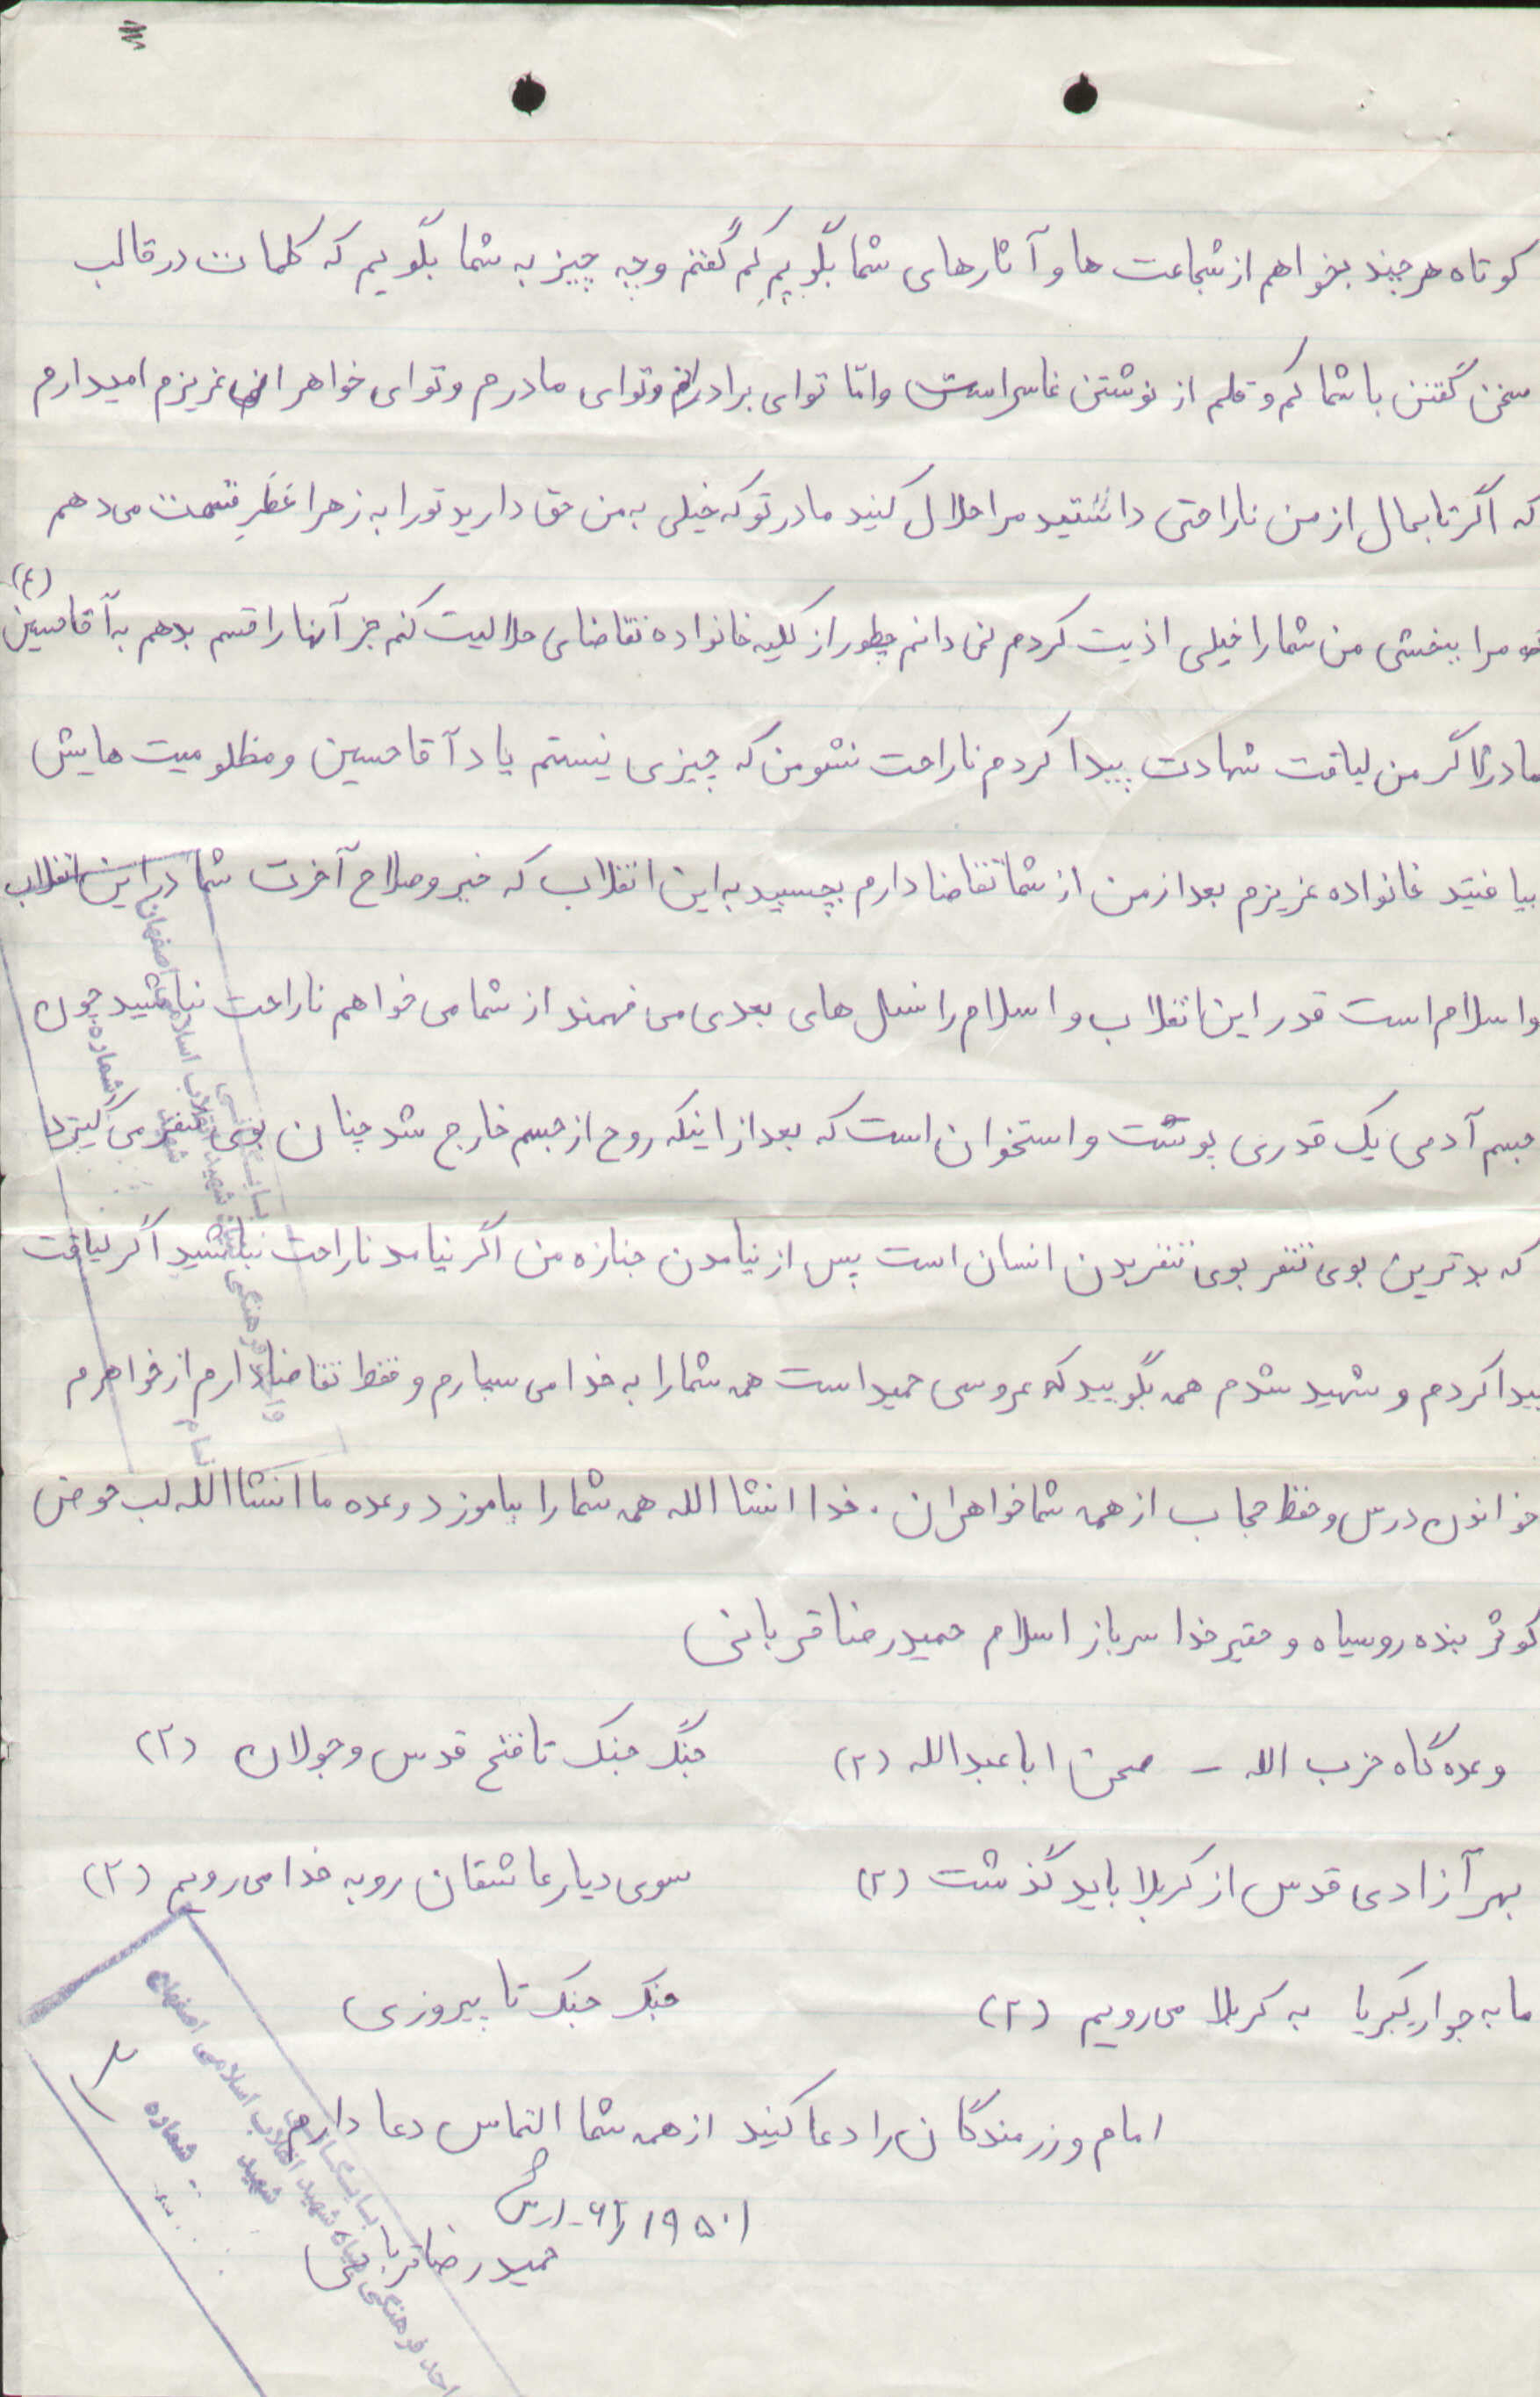 کوتاه هر چند بخواهم از شجاعت ها و آثارهای شما بگویم کم گفتم و چه چیز به شما بگویم که کلمات در قالب
سخن گفتن با شما کم و قلم از نوشتن غاسر است و امّا تو ای برادرانم و تو ای مادرم و تو ای خواهرانم عزیزم امیدارم
که اگر تا بحال از من ناراحتی داشتید مرا حلال کنید مادر تو که خیلی به من حق دارید تو را به زهرا عطهر قسمت می دهم
که مرا ببخشی من شما را خیلی اذیت کردم نمی دانم چطور از کلیه خانواده تقاضای حلالیت کنم جز آنها را قسم بدهم به آقا حسین (ع)
مادر اگر من لیاقت شهادت پیدا کردم ناراحت نشو من که چیزی نیستم یاد آقا حسین و مظلومیت هایش
بیافتید خانواده عزیزم بعد از من از شما تقاضا دارم بچسبید به این انقلاب که خیر و صلاح آخرت شما در این انقلاب
و اسلام است قدر این انقلاب و اسلام را نسل های بعدی می فهمند از شما می خواهم ناراحت نباشید چون
جسم آدمی یک قدری پوست و استخوان است که بعد از اینکه روح از جسم خارج شد چنان بوی تنفر می گیرد
که بدترین بوی تنفر بوی تنفر بدن انسان است پس از نیامدن جنازه من اگر نیامد ناراحت نباشید اگر لیاقت
پیدا کردم و شهید شدم همه بگویید که عروسی حمید است همه شما را به خدا می سپارم و فقط تقاضا دارم از خواهرم
خواندن درس و حفظ حجاب از همه شما خواهران . خدا انشا الله همه شما را بیاموزد وعده ما انشا الله لب حوض
کوثر بنده روسیاه و حقیر خدا سرباز اسلام حمیدرضا قربانی
وعده گاه حزب الله - صحن ابا عبدالله (۲) جنگ جنگ تا فتح قدس و جولان (۲)
بهر آزادی قدس از کربلا باید گذشت (۲) سوی دیار عاشقان رو به خدا می رویم (۲)
ما به جوار کبریا به کربلا می رویم (۲) جنگ جنگ تا پیروزی
امام و رزمندگان را دعا کنید از همه شما التماس دعا دارم
حمیدرضا قربانی
شماره